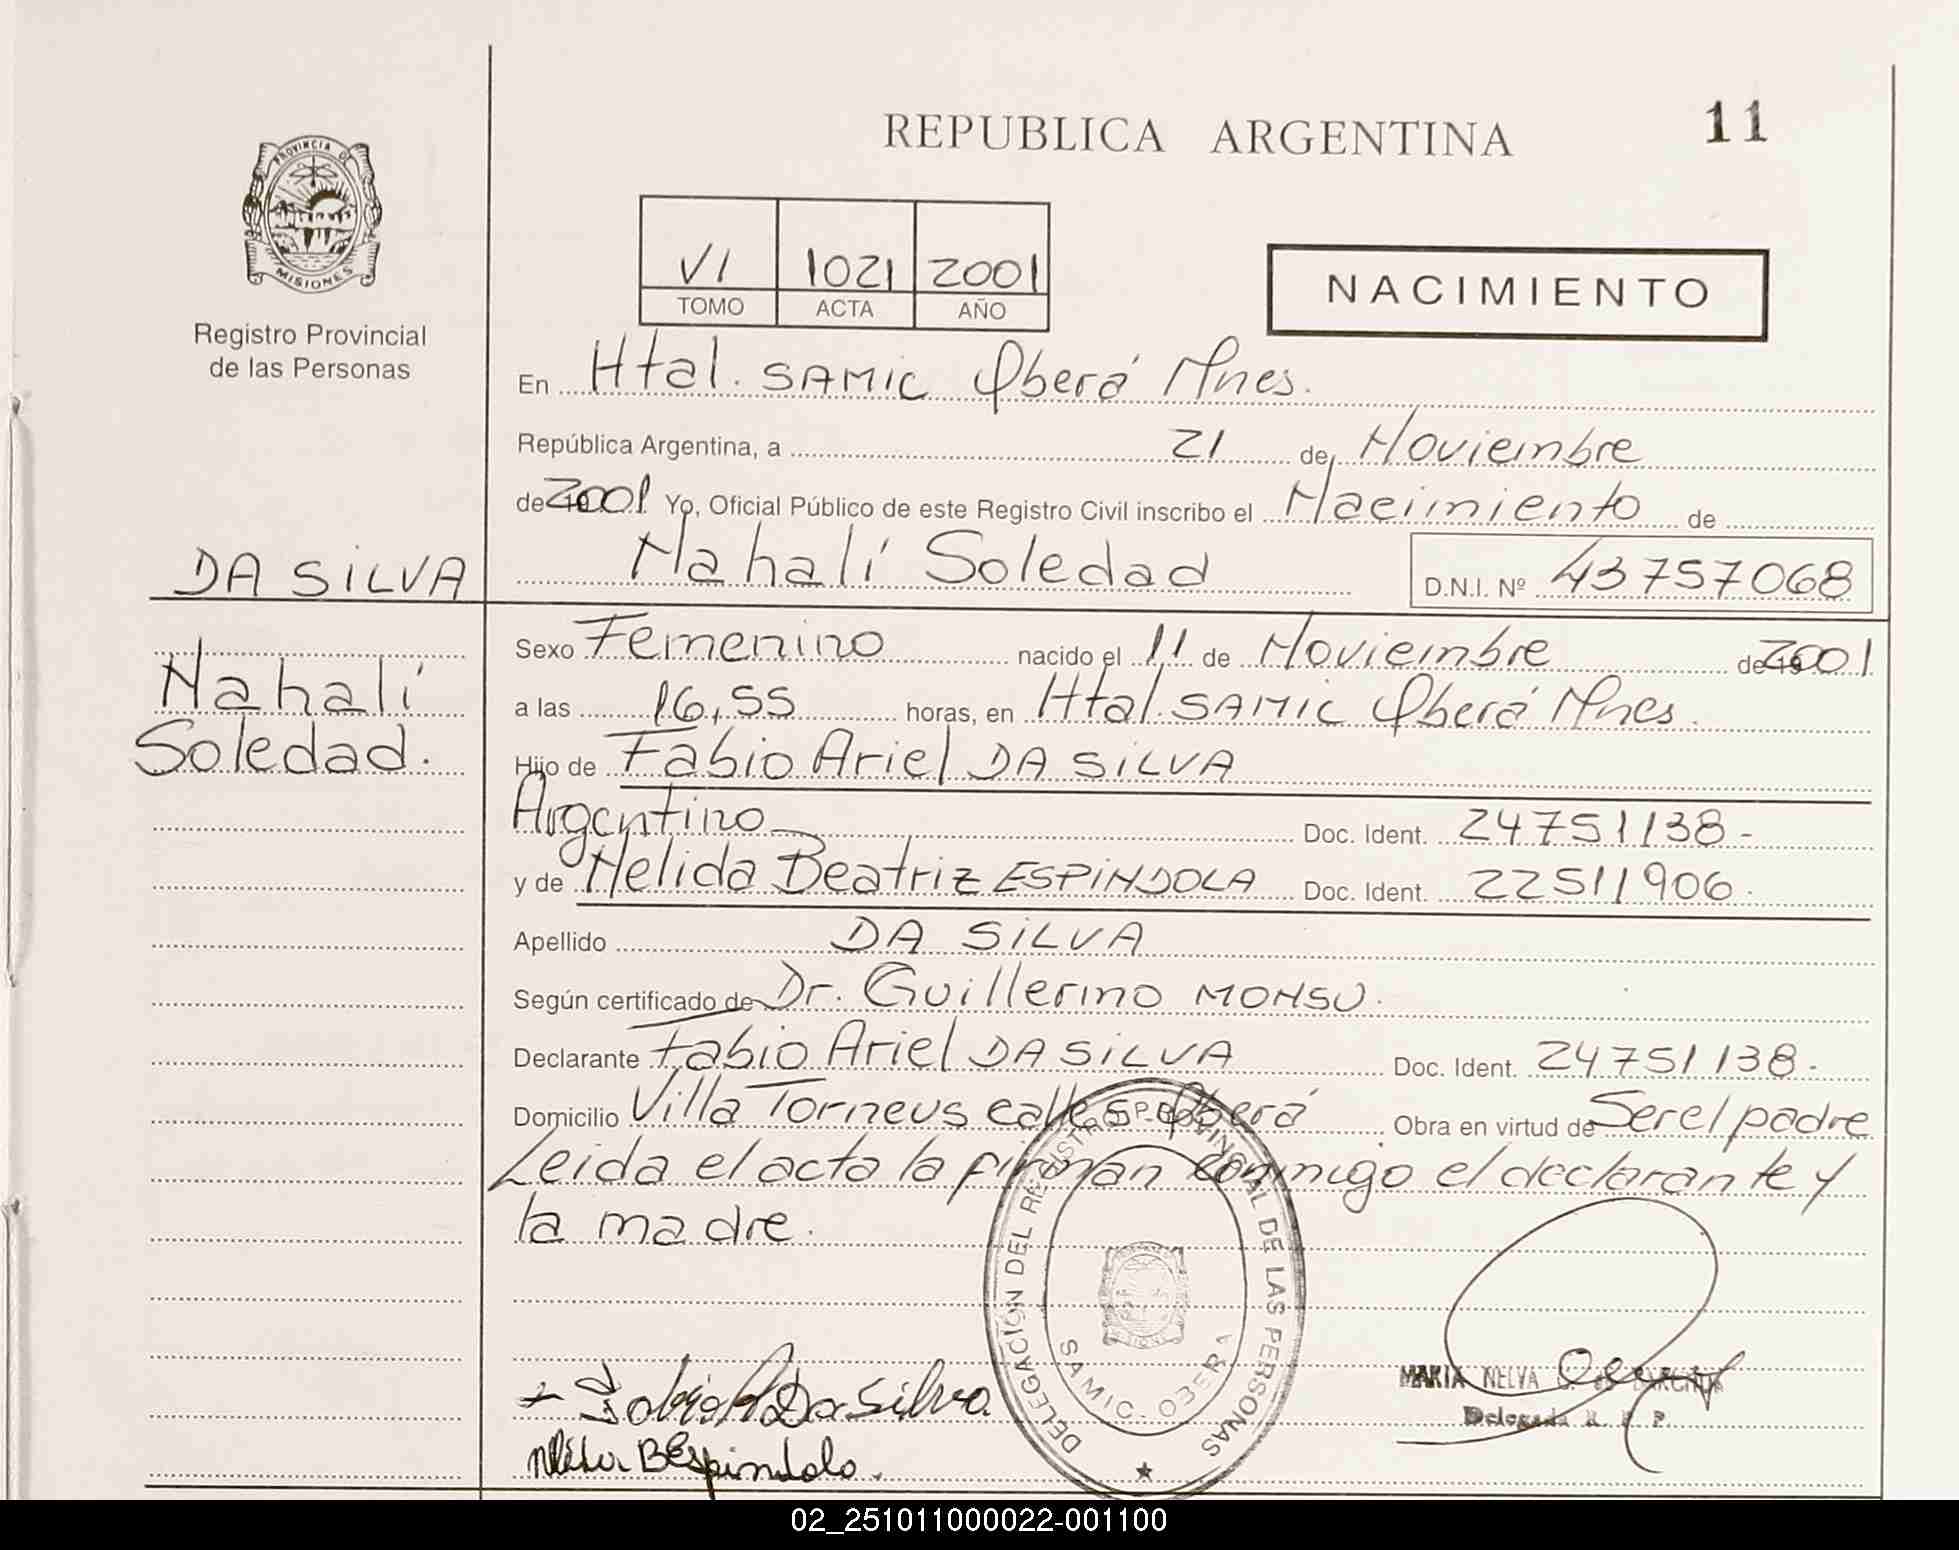 REPUBLICA ARGENTINA
11
PROVINCIA DE
MISIONES
Registro Provincial
de las Personas
VI 1021 2001
TOMO ACTA AÑO
NACIMIENTO
En Htal. SAMIC Oberá Mnes.
República Argentina, a 21 de Noviembre
de 2001 Yo, Oficial Público de este Registro Civil inscribo el Nacimiento de
Nahalí Soledad D.N.I. Nº 43757068
DA SILVA
Nahalí
Soledad.
Sexo Femenino nacido el 11 de Noviembre de 2001
a las 16,55 horas, en Htal. SAMIC Oberá Mnes.
Hijo de Fabio Ariel DA SILVA
Argentino Doc. Ident. 24751138-
y de Nelida Beatriz ESPINDOLA Doc. Ident. 22511906.
Apellido DA SILVA
Según certificado de Dr. Guillermo MONSU.
Declarante Fabio Ariel DA SILVA Doc. Ident. 24751138.
Domicilio Villa Torneus calle s Oberá Obra en virtud de Ser el padre
Leida el acta la firman conmigo el declarante y
la madre.
DELEGACIÓN DEL REGISTRO PROVINCIAL DE LAS PERSONAS
SAMIC - OBERA
MARIA NELVA
Delegada R. P. P.
Da Silva
B Espindola.
02_251011000022-001100